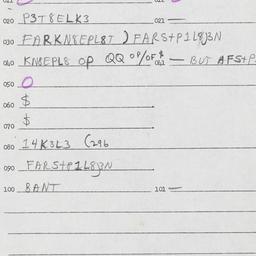 020 P3T8ELK3 021 —
030 FARKN8EPL8T ) FARS+P1L8J3N
040 KN8EPL8 OP QQ OP/OF $ 041 — BUT AFS+P
050 O
060 $
070 $
080 14K3L3 (296
090 FARS+P1L8J3N
100 8ANT 101 —